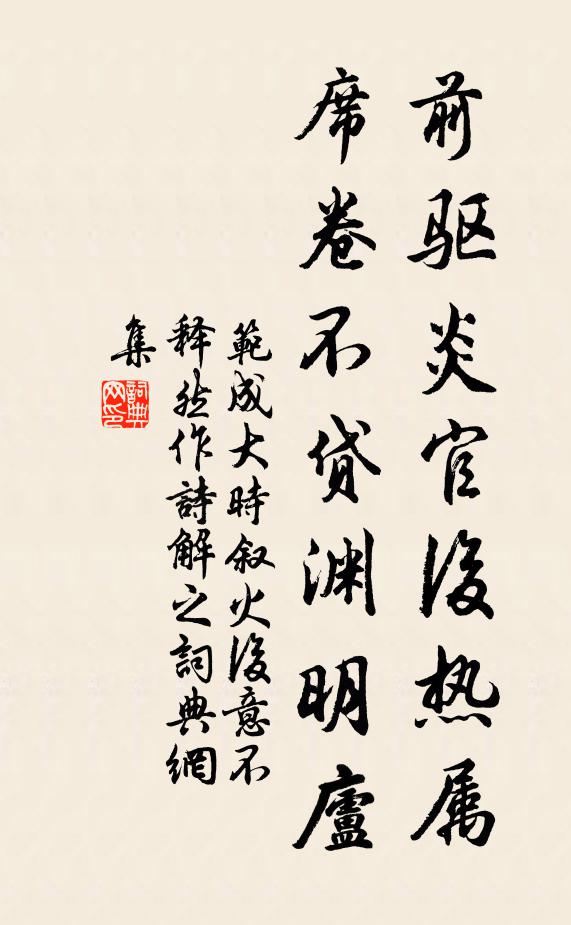 前驱炎官後热属
席卷不贷渊明廬
範成大時叙火後意不
释然作詩解之詞典網
集
詞典
网印